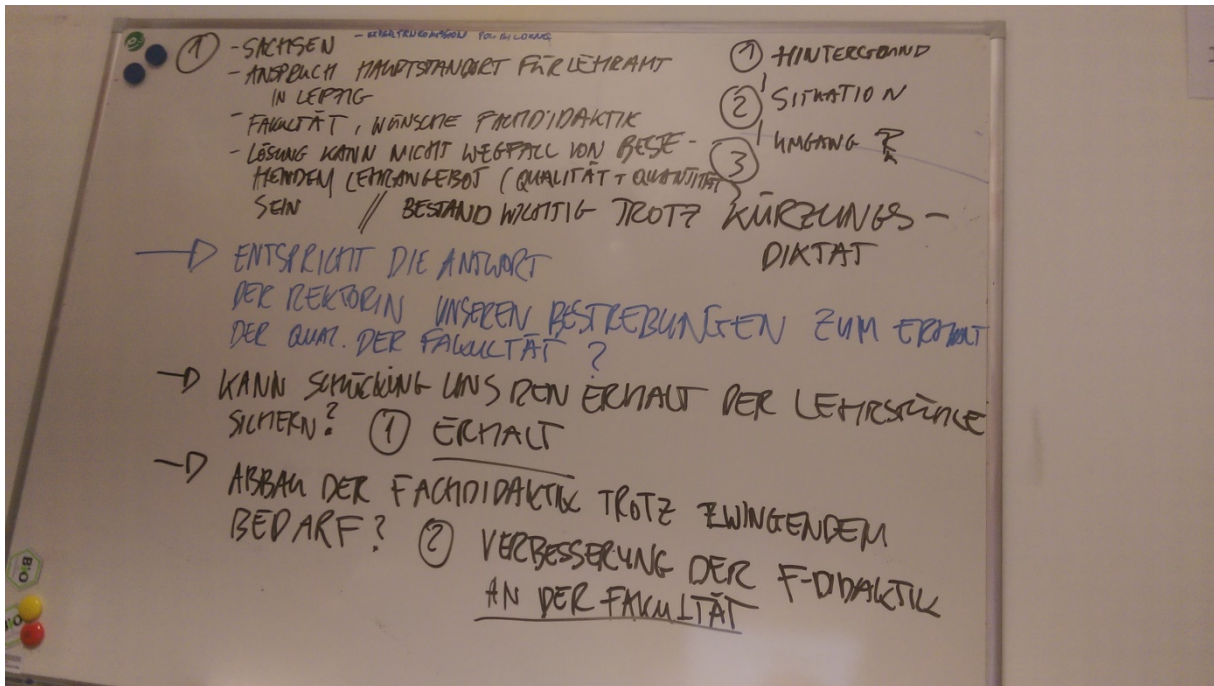 ① - SACHSEN
- ANSPRUCH HAUPTSTANDORT FÜR LEHRAMT
IN LEIPZIG
- FAKULTÄT, WÜNSCHE FACHDIDAKTIK
- LÖSUNG KANN NICHT WEGFALL VON BESTE-
HENDEM LEHRANGEBOT (QUALITÄT + QUANTITÄT
SEIN // BESTAND WICHTIG TROTZ KÜRZUNGS-
DIKTAT
① HINTERGRUND
② SITUATION
③ UMGANG
→ ENTSPRICHT DIE ANTWORT
DER REKTORIN UNSEREN BESTREBUNGEN ZUM ERHALT
DER QUAL. DER FAKULTÄT?
→ KANN SCHÜCKING UNS DEN ERHALT DER LEHRSTÜHLE
SICHERN? ① ERHALT
→ ABBAU DER FACHDIDAKTIK TROTZ ZWINGENDEM
BEDARF? ② VERBESSERUNG DER F-DIDAKTIK
AN DER FAKULTÄT
BIO